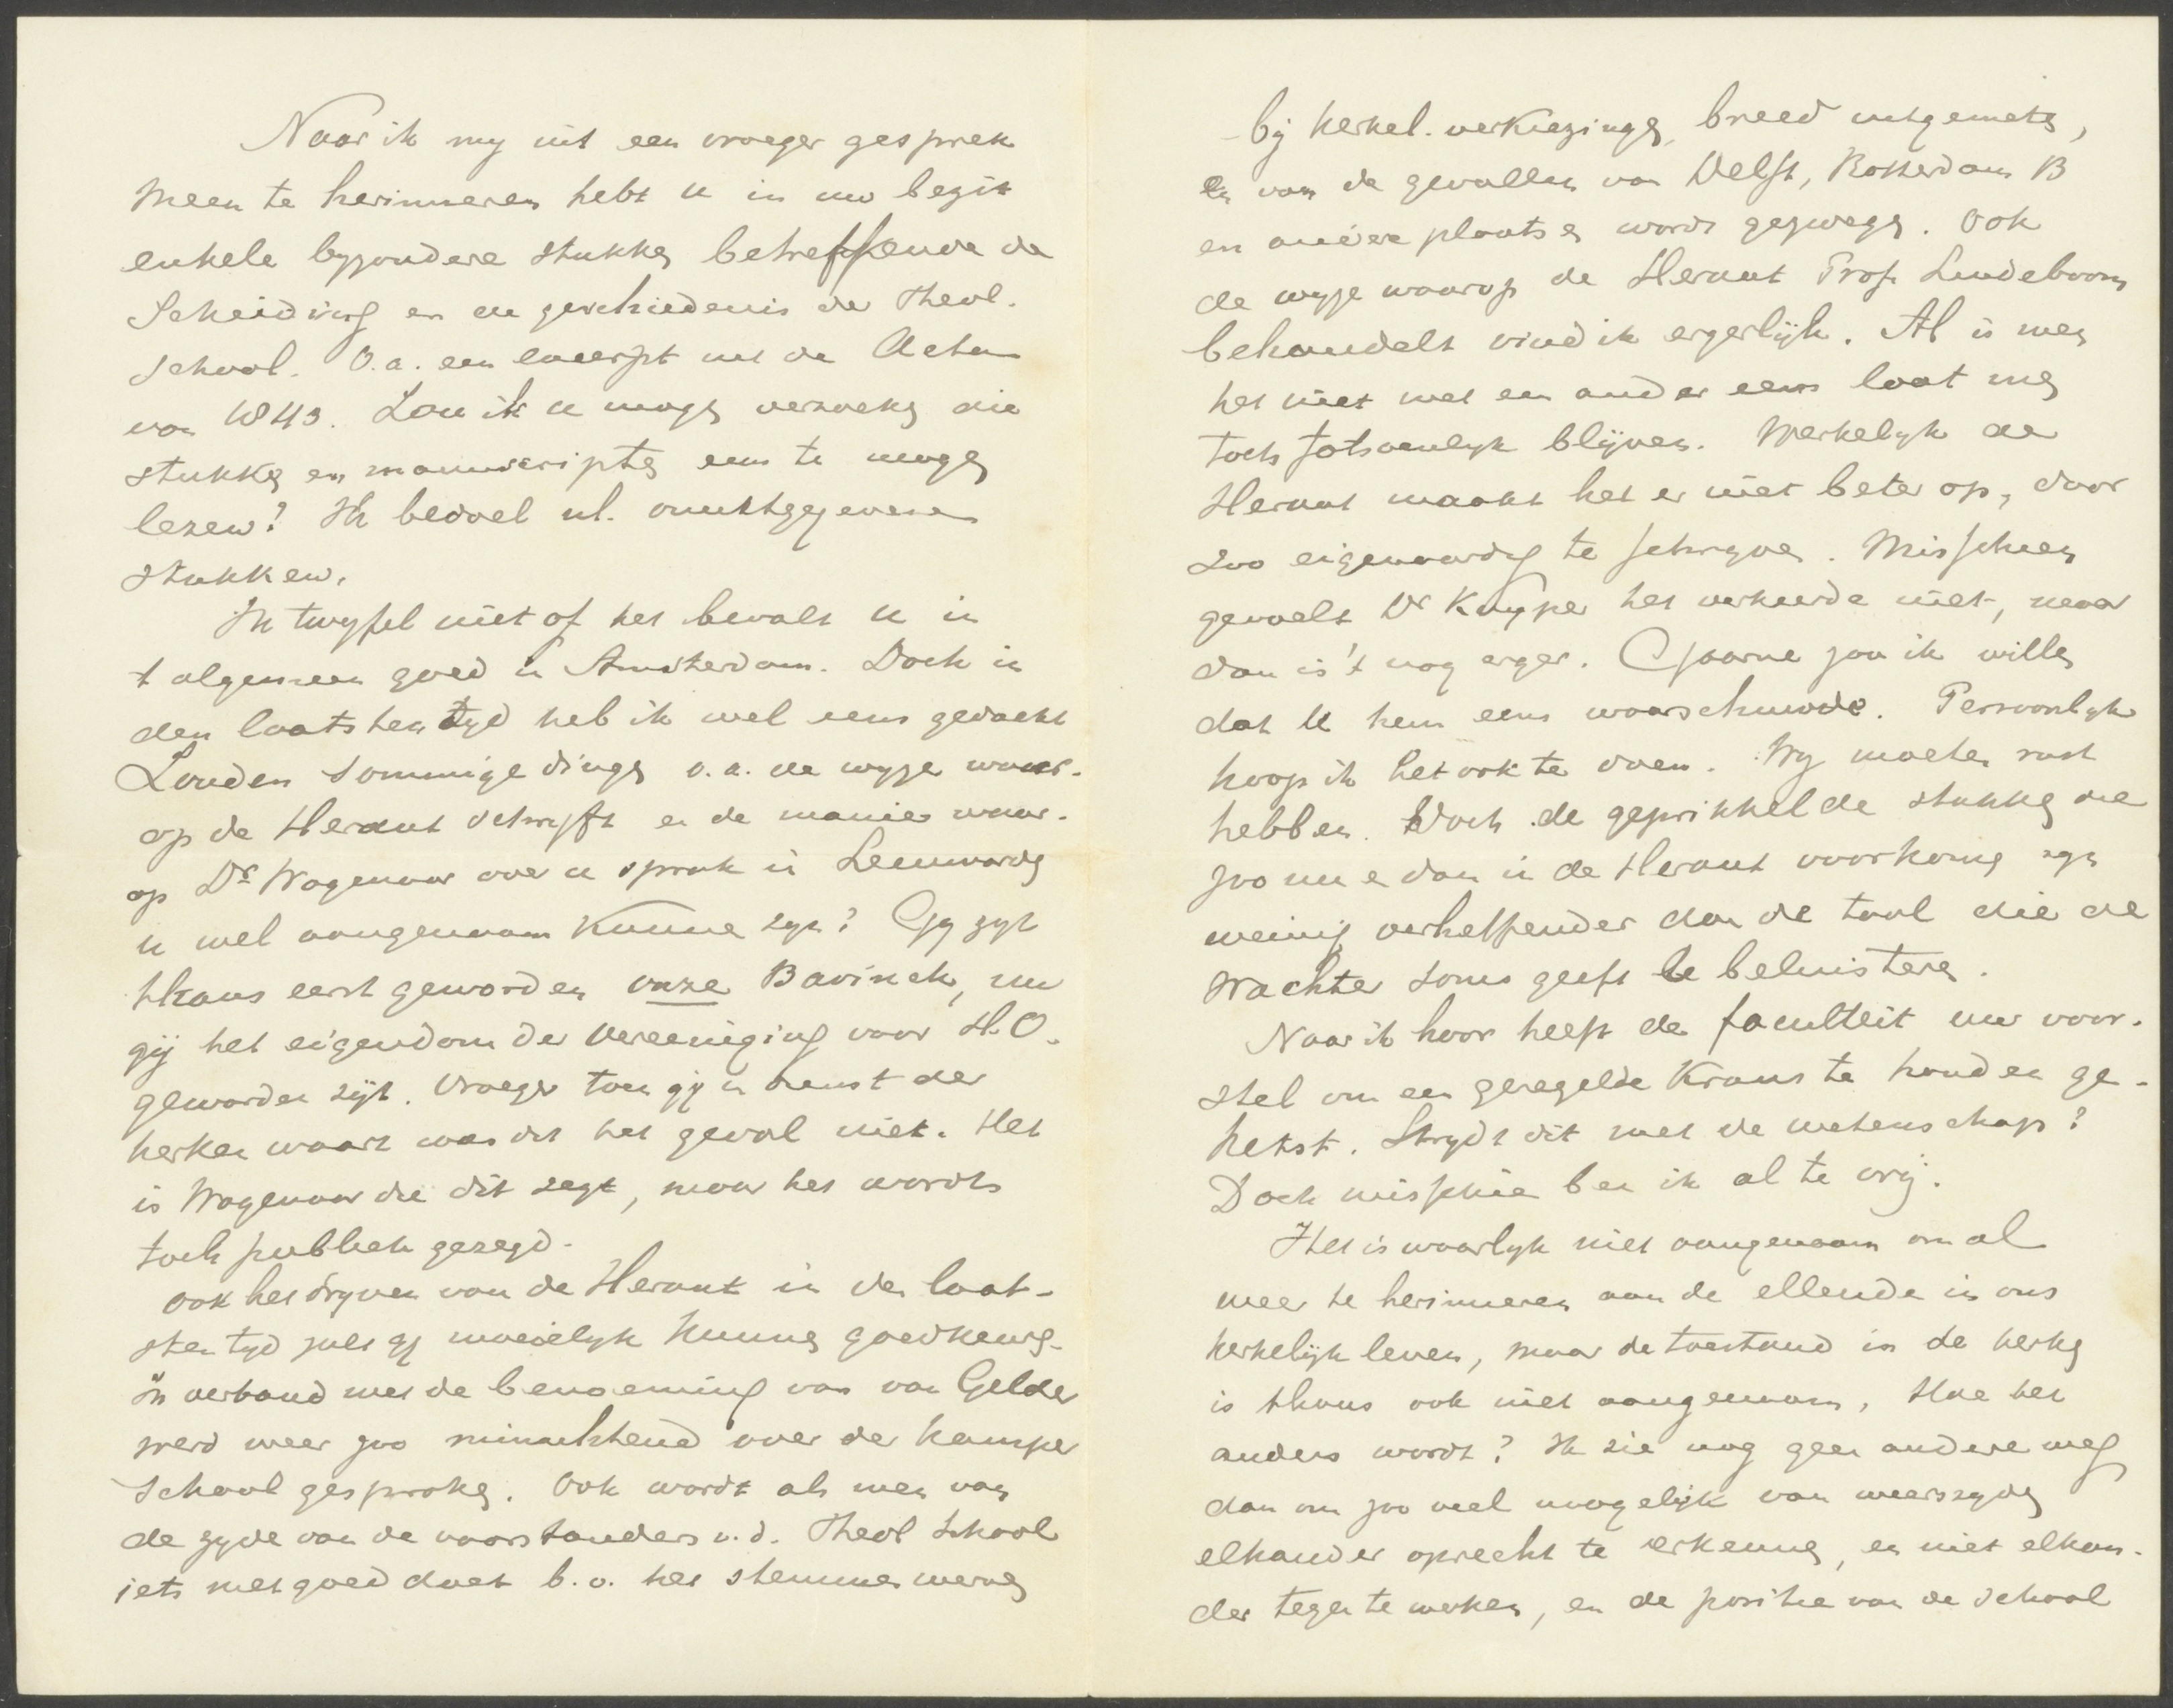 Naar ik my uit een vroeger gesprek
meen te herinneren hebt u in uw bezit
enkele byzondere stukken betreffende de
Scheiding en de geschiedenis der Theol.
School. O.a. een excerpt uit de Acten
van 1843. Zou ik u mogen verzoeken die
stukken en manuscripten eens te mogen
lezen? Ik bedoel nl. onuitgegevene
stukken.
Ik twyfel niet of het bevalt u in
't algemeen goed in Amsterdam. Doch in
den laatsten tyd heb ik wel eens gedacht
Zouden sommige dingen o.a. de wyze waar-
op de Heraut schryft en de manier waar-
op Dr Wagenaar over u sprak in Leeuwarden
u wel aangenaam kunnen zyn? Gy zyt
thans eerst geworden onze Bavinck, nu
gij het eigendom der Vereeniging voor H.O.
geworden zijt. Vroeger toen gy in dienst der
kerken waart was dit het geval niet. Het
is Wagenaar die dit zegt, maar het wordt
toch publiek gezegd.
Ook het dryven van de Heraut in den laat-
sten tyd zult gy moeielyk kunnen goedkeuren.
In verband met de benoeming van van Gelder
werd weer zoo minachtend over de Kamper
School gesproken. Ook wordt als men van
de zyde van de voorstanders v.d. Theol School
iets niet goed doet b.v. het stemmen werven
bij kerkel. verkiezingen, breed uitgemeten,
en van de gevallen van Delft, Rotterdam B
en andere plaatsen wordt gezwegen. Ook
de wyze waarop de Heraut Prof. Lindeboom
behandelt vind ik ergerlijk. Al is men
het niet met een ander eens laat men
toch fatsoenlyk blijven. Werkelyk de
Heraut maakt het er niet beter op, door
zoo eigenaardig te schryven. Misschien
gevoelt Dr Kuyper het verkeerde niet, maar
dan is 't nog erger. Gaarne zou ik willen
dat U hem eens waarschuwde. Persoonlyk
hoop ik het ook te doen. Wy moeten rust
hebben. Doch de geprikkelde stukken die
zoo nu e dan in de Heraut voorkomen zyn
weinig verheffender dan de taal die de
Wachter soms geeft te beluisteren.
Naar ik hoor heeft de faculteit uw voor-
stel om een geregelde Krans te houden ge-
ketst. Strydt dit met de wetenschap?
Doch misschien ben ik al te vrij.
Het is waarlyk niet aangenaam om al
weer te herinneren aan de ellende in ons
kerkelijk leven, maar de toestand in de kerken
is thans ook niet aangenaam. Hoe het
anders wordt? Ik zie nog geen andere weg
dan om zoo veel mogelijk van weerszyden
elkander oprecht te erkennen, en niet elkan-
der tegen te werken, en de positie van de School